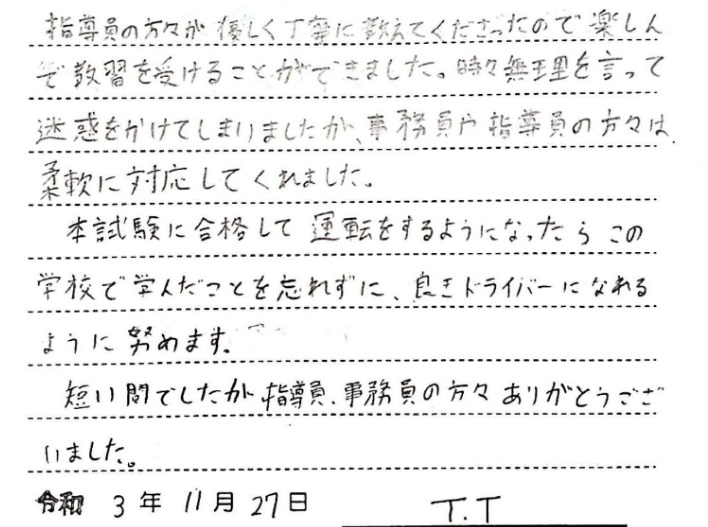 指導員の方々が優しく丁寧に教えてくださったので楽しん
で教習を受けることができました。時々無理を言って
迷惑をかけてしまいましたが、事務員や指導員の方々は、
柔軟に対応してくれました。
本試験に合格して運転をするようになったらこの
学校で学んだことを忘れずに、良きドライバーになれる
ように努めます。
短い間でしたが、指導員、事務員の方々ありがとうござ
いました。
令和 3年 11月 27日 T.T